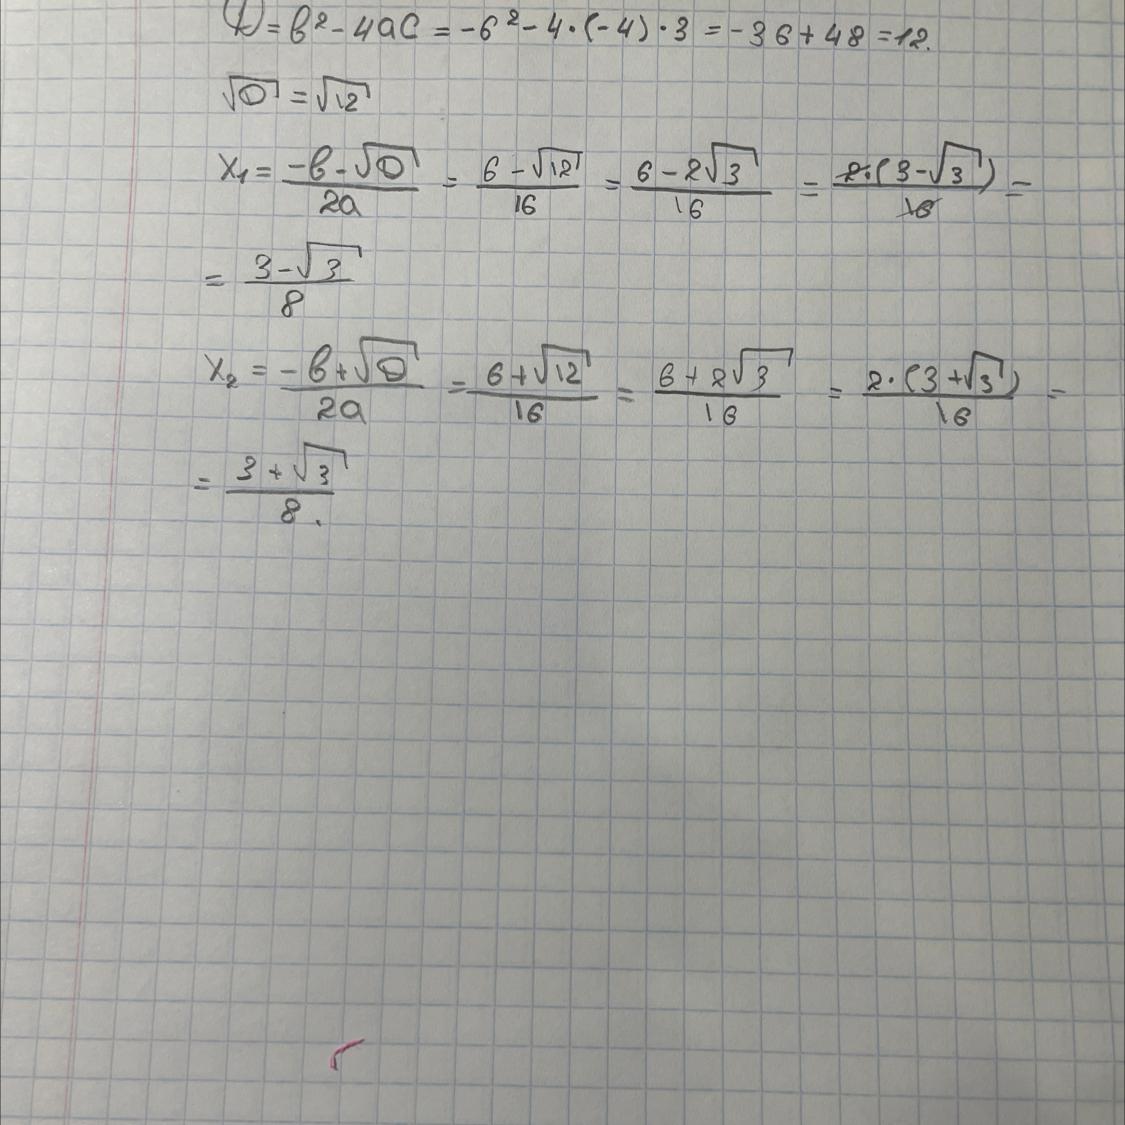 D = b² - 4ac = -6² - 4·(-4)·3 = -36 + 48 = 12.
√D = √12
x₁ = (-b - √D)/2a = (6 - √12)/16 = (6 - 2√3)/16 = (2·(3 - √3))/16 =
= (3 - √3)/8
x₂ = (-b + √D)/2a = (6 + √12)/16 = (6 + 2√3)/16 = (2·(3 + √3))/16 =
= (3 + √3)/8.